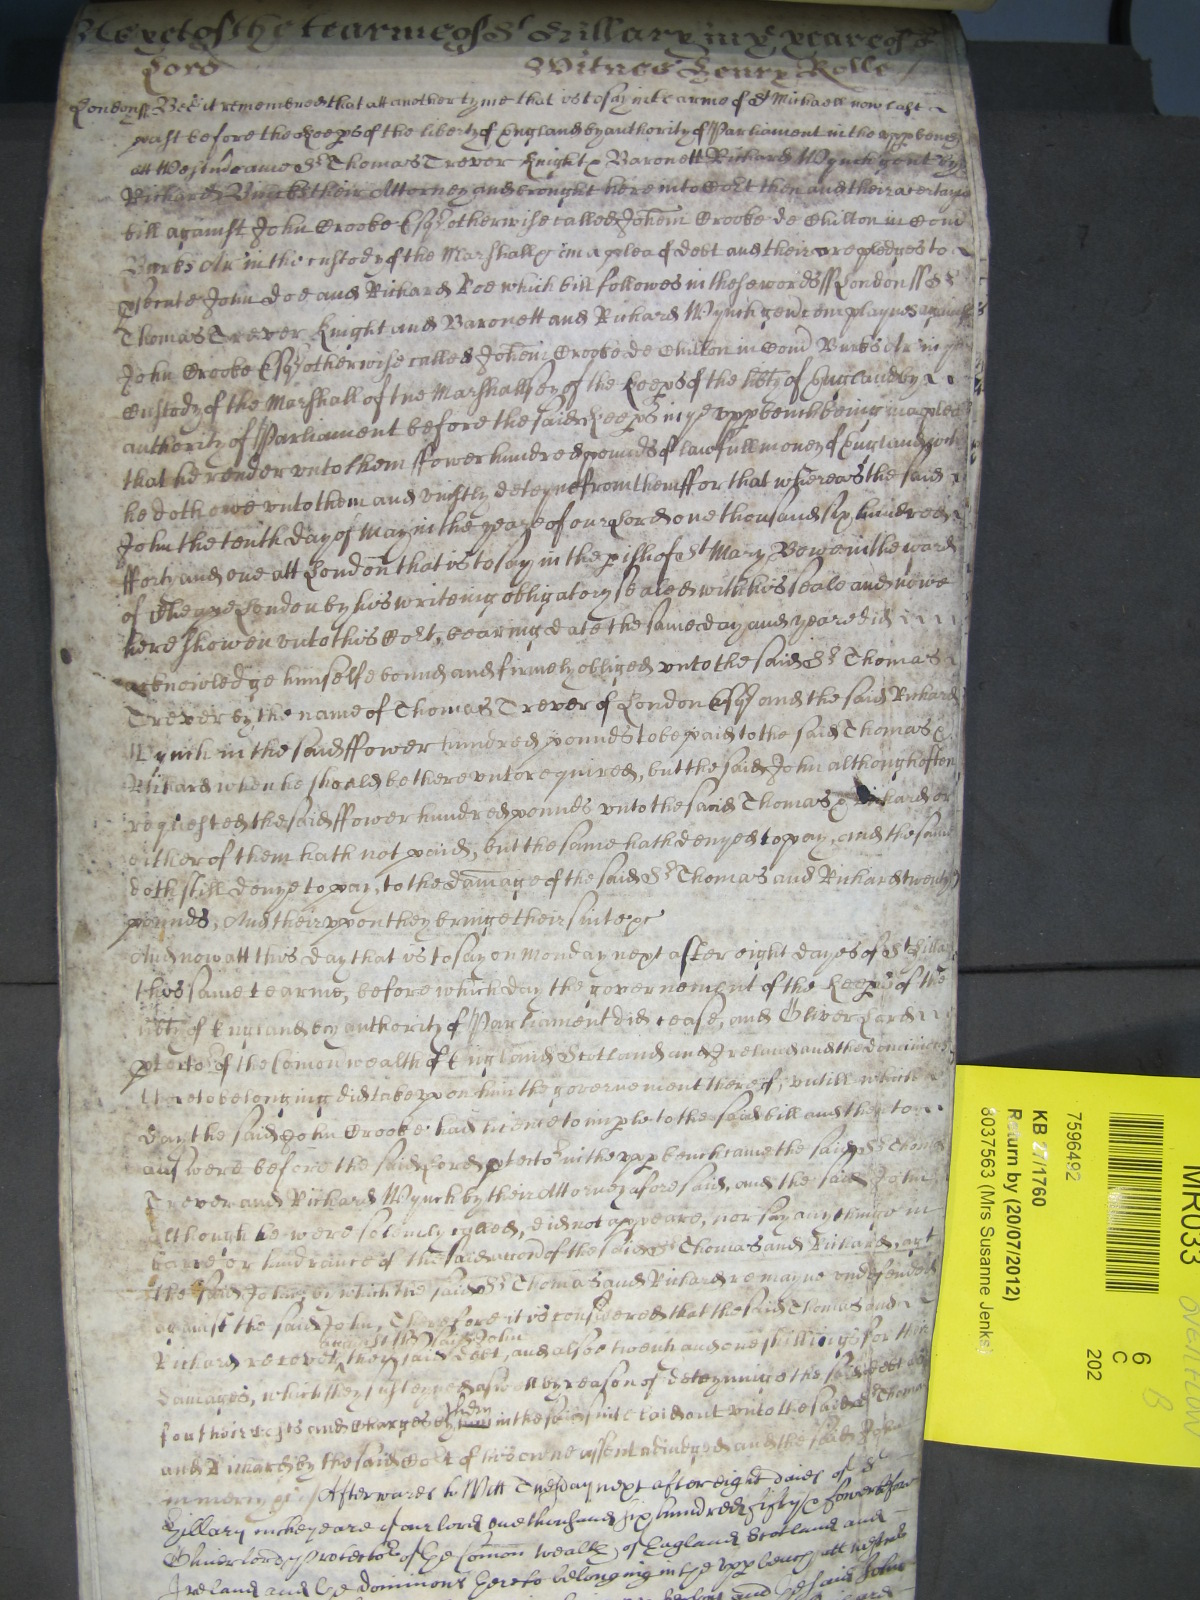 Yet of the tearme of St Hillary in ye yeare of or
Lord Witnes Henry Rolle
London ss Bee it remembred that att another tyme that is to say in tearme of St Michaell now last
past before the Keeps of the liberty of England by authority of Parliament in the upp bench
att Westm came Sr Thomas Trever Knight & Baronett Richard Wynch gent by
Richard their Attorney and brought here into Cort then and their a certayne
bill against John Crooke Esqr otherwise called Johem Crooke de Chilton in Com
Bucks Ar in the custody of the Marshall &c in a plea of debt and their are pledges to
psecute John Doe and Richard Roe which bill followes in these words ss London ss Sr
Thomas Trever Knight and Baronett and Richard Wynch gent complaynes against
John Crooke Esqr otherwise called Johem Crooke de Chilton in Com Bucks Ar in ye
Custody of the Marshall of the Marshallsey of the Keeps of the libty of England by
authority of Parliament before the said Keeps in ye upp bench being in a plea
that he render unto them ffower hundred pounds of lawfull money of England wch
he doth owe unto them and uniustly deteyne from them ffor that whereas the said
John the tenth day of May in the yeare of our Lord one thousand six hundred
fforty and one att London that is to say in the pish of St Mary Bowe in the ward
of Cheape London by his writeing obligatory sealed with his seale and nowe
here showen unto this Cort, beareing date the same day and yeare did
acknowledge himselfe bound and firmely obliged unto the said Sr Thomas
Trever by the name of Thomas Trever of London Esqr and the said Richard
Wynch in the said ffower hundred pounds to be paid to the said Thomas &
Richard when he should be thereunto required, but the said John although often
requested the said ffower hundred pounds unto the said Thomas & Richard or
either of them hath not paid, but the same hath denyed to pay, and the same
doth still denye to pay, to the damage of the said Sr Thomas and Richard twenty
pounds, And theiruppon they bringe their suite &c
And now att this day that is to say on Monday next after eight dayes of St Hillary
this same tearme, before which day the governement of the Keeps of the
libty of England by authority of Parliament did cease, and Oliver Lord
ptector of the Comonwealth of England Scotland and Ireland and the dominions
thereto belonging did take upon him the governement thereof, untill which
day the said John Crooke had licence to imple to the said bill and then to
answere before the said Lord ptector in the upp bench came the said Sr Thomas
Trever and Richard Wynch by their Attorney aforesaid, and the said John
Although he were solemly called, did not appeare, nor say any thinge in
barre or hindrance of the said accon of the said Sr Thomas and Richard, agt
the said John, by which the said Sr Thomas and Richard remayne undefended
against the said John, Therefore it is considered that the said Thomas and
against the said John
Richard recover their said debt, and alsoe twenty and one shillings for their
damages, which they susteyned aswell by reason of deteyning the said debt as
for their costs and charges by them in the said suite laid out unto the said Sr Thomas
and Richard by the said Cort of his owne assent adiudged and the said John
in mercy &c Afterwards to Witt Tuesday next after eight daies of St
Hillary in the yeare of our lord one thousand six hundred fifty & fower before
Oliver lord Protector of the Comon wealth of England Scotland and
Ireland and the dominions thereto belonging in the upp bench att Westmr
and the said John
MR033
7596492
KB 27/1760
Return by (20/07/2012)
8037563 (Mrs Susanne Jenks)
6
C
202